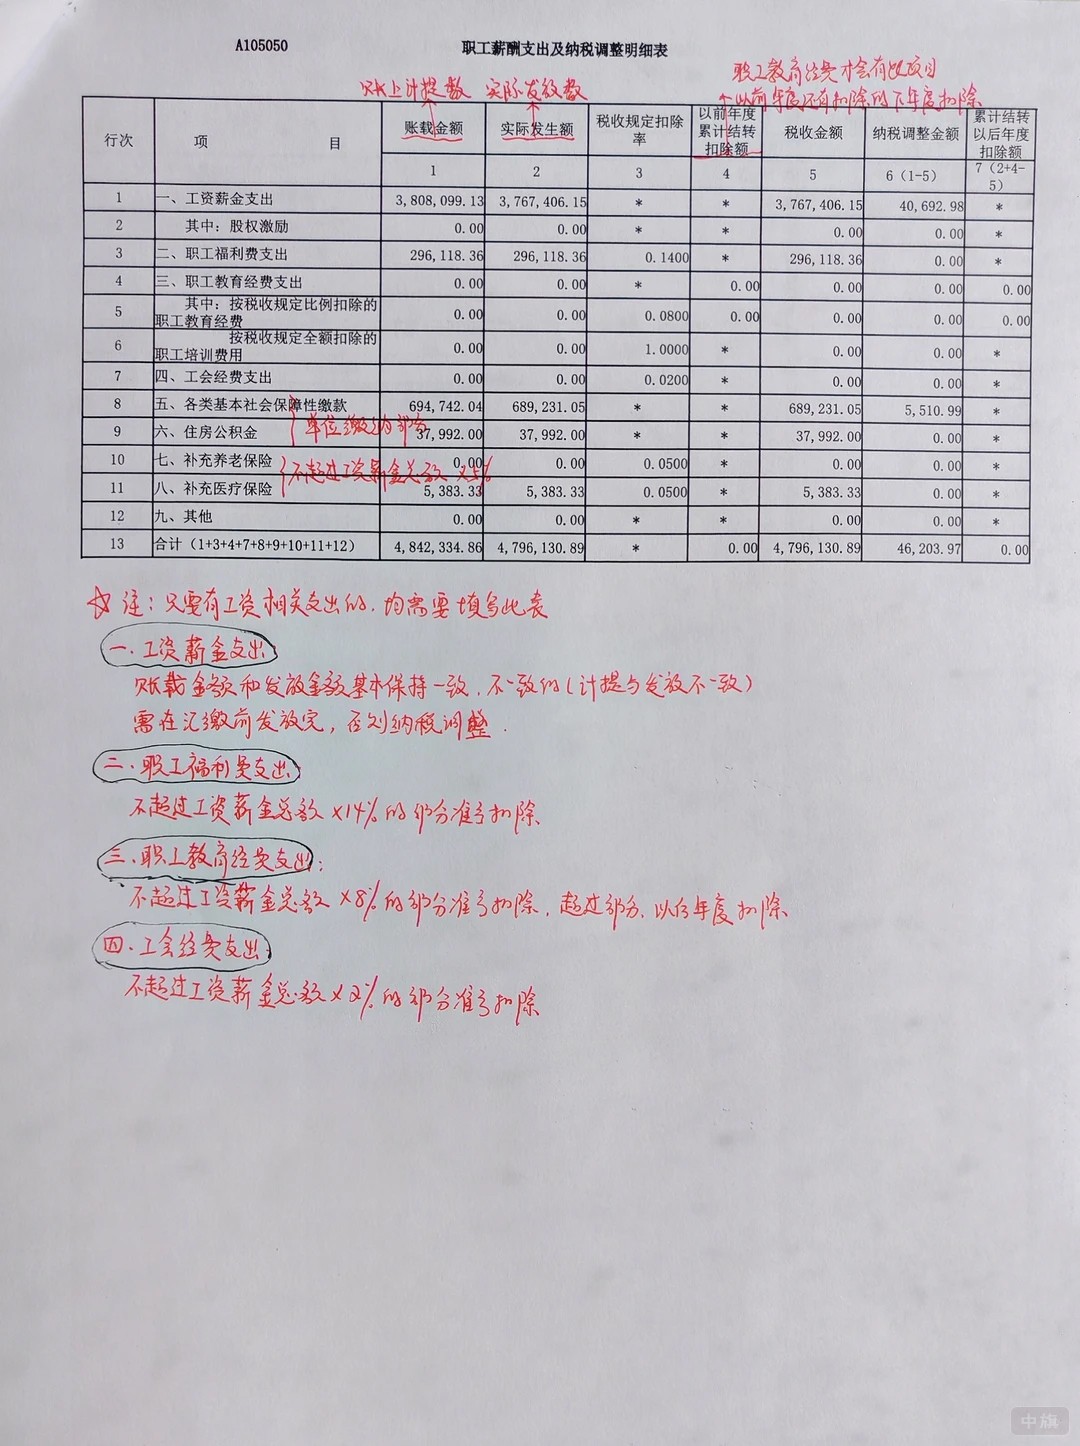 A105050 职工薪酬支出及纳税调整明细表
职工教育经费才会有此项目
账上计提数 实际发放数 以前年度没有扣除的下年度扣除
行次 项 目 账载金额 实际发生额 税收规定扣除率 以前年度累计结转扣除额 税收金额 纳税调整金额 累计结转以后年度扣除额
1 2 3 4 5 6（1-5） 7（2+4-5）
1 一、工资薪金支出 3,808,099.13 3,767,406.15 * * 3,767,406.15 40,692.98 *
2 其中：股权激励 0.00 0.00 * * 0.00 0.00 *
3 二、职工福利费支出 296,118.36 296,118.36 0.1400 * 296,118.36 0.00 *
4 三、职工教育经费支出 0.00 0.00 * 0.00 0.00 0.00 0.00
5 其中：按税收规定比例扣除的职工教育经费 0.00 0.00 0.0800 0.00 0.00 0.00 0.00
6 按税收规定全额扣除的职工培训费用 0.00 0.00 1.0000 * 0.00 0.00 *
7 四、工会经费支出 0.00 0.00 0.0200 * 0.00 0.00 *
8 五、各类基本社会保障性缴款 694,742.04 689,231.05 * * 689,231.05 5,510.99 *
单位缴纳部分
9 六、住房公积金 37,992.00 37,992.00 * * 37,992.00 0.00 *
10 七、补充养老保险 0.00 0.00 0.0500 * 0.00 0.00 *
不超过工资薪金总额×5%
11 八、补充医疗保险 5,383.33 5,383.33 0.0500 * 5,383.33 0.00 *
12 九、其他 0.00 0.00 * * 0.00 0.00 *
13 合计（1+3+4+7+8+9+10+11+12） 4,842,334.86 4,796,130.89 * 0.00 4,796,130.89 46,203.97 0.00
☆ 注：只要有工资相关支出的，均需要填写此表
一．工资薪金支出
账载金额和发放金额基本保持一致，不一致的（计提与发放不一致）
需在汇缴前发放完，否则纳税调整．
二．职工福利费支出
不超过工资薪金总额×14%的部分准予扣除
三．职工教育经费支出：
不超过工资薪金总额×8%的部分准予扣除，超过部分，以后年度扣除
四．工会经费支出
不超过工资薪金总额×2%的部分准予扣除
中旗